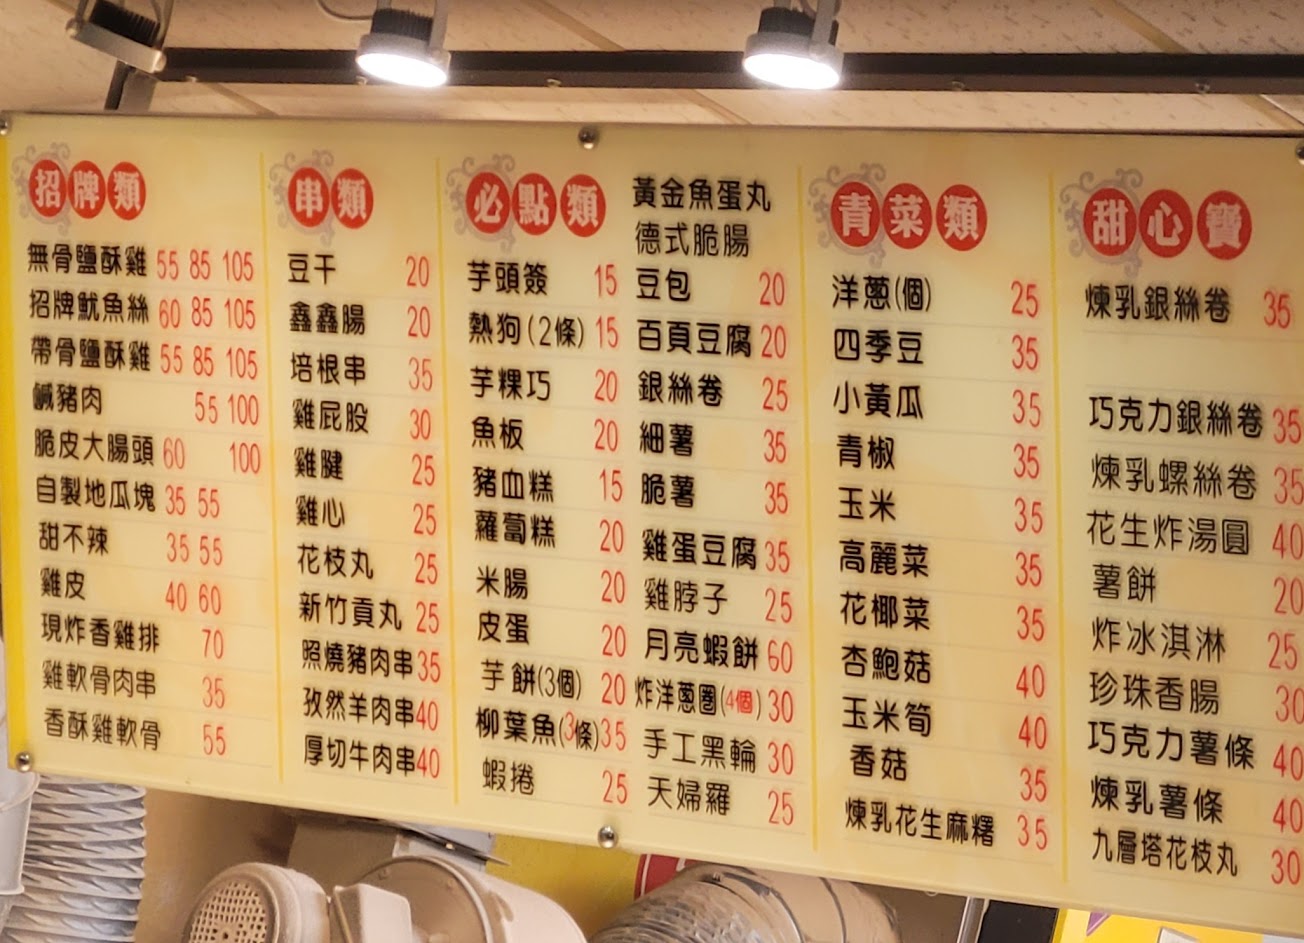 招牌類
無骨鹽酥雞 55 85 105
招牌魷魚絲 60 85 105
帶骨鹽酥雞 55 85 105
鹹豬肉 55 100
脆皮大腸頭 60 100
自製地瓜塊 35 55
甜不辣 35 55
雞皮 40 60
現炸香雞排 70
雞軟骨肉串 35
香酥雞軟骨 55
串類
豆干 20
鑫鑫腸 20
培根串 35
雞屁股 30
雞腱 25
雞心 25
花枝丸 25
新竹貢丸 25
照燒豬肉串 35
孜然羊肉串 40
厚切牛肉串 40
必點類
芋頭簽 15
熱狗(2條) 15
芋粿巧 20
魚板 20
豬血糕 15
蘿蔔糕 20
米腸 20
皮蛋 20
芋餅(3個) 20
柳葉魚(3條) 35
蝦捲 25
黃金魚蛋丸
德式脆腸
豆包 20
百頁豆腐 20
銀絲卷 25
細薯 35
脆薯 35
雞蛋豆腐 35
雞脖子 25
月亮蝦餅 60
炸洋蔥圈(4個) 30
手工黑輪 30
天婦羅 25
青菜類
洋蔥(個) 25
四季豆 35
小黃瓜 35
青椒 35
玉米 35
高麗菜 35
花椰菜 35
杏鮑菇 40
玉米筍 40
香菇 35
煉乳花生麻糬 35
甜心寶
煉乳銀絲卷 35
巧克力銀絲卷 35
煉乳螺絲卷 35
花生炸湯圓 40
薯餅 20
炸冰淇淋 25
珍珠香腸 30
巧克力薯條 40
煉乳薯條 40
九層塔花枝丸 30